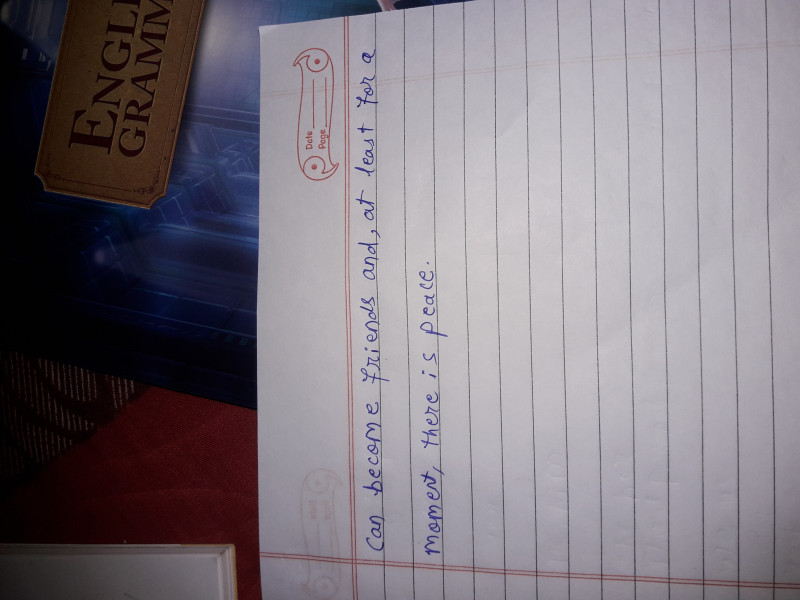 ENGLI
GRAMM
Date
Page
can become friends and, at least for a
moment, there is peace.